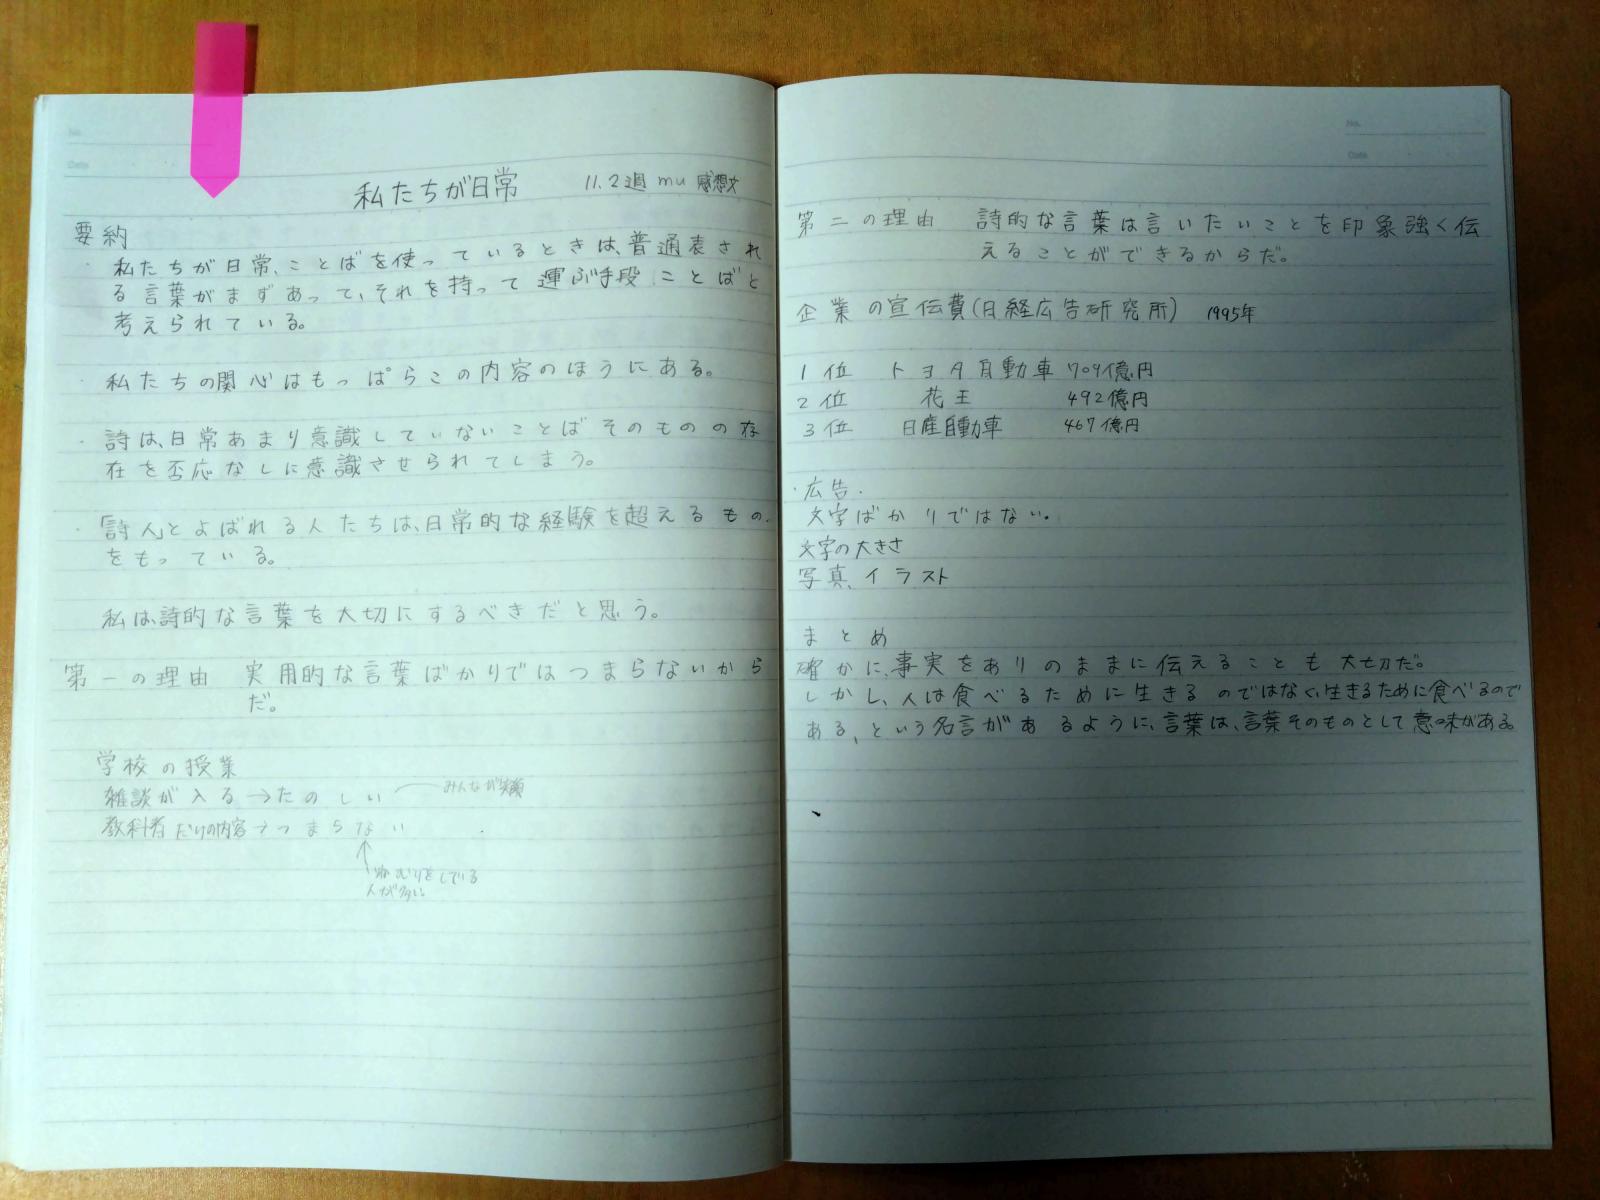 No.
Date
私たちが日常 11.2週 mu 感想文
要約
・私たちが日常、ことばを使っているときは、普通表され
る言葉がまずあって、それを持って運ぶ手段ことばと
考えられている。
・私たちの関心はもっぱらこの内容のほうにある。
・詩は、日常あまり意識していないことばそのものの存
在を否応なしに意識させられてしまう。
・「詩人」とよばれる人たちは、日常的な経験を超えるもの
をもっている。
私は、詩的な言葉を大切にするべきだと思う。
第一の理由 実用的な言葉ばかりではつまらないから
だ。
学校の授業
雑談が入る→たのしい みんなが笑顔
教科書だけの内容→つまらない
↑
いねむりをしている
人が多い。
No.
Date
第二の理由 詩的な言葉は言いたいことを印象強く伝
えることができるからだ。
企業の宣伝費(日経広告研究所) 1995年
1位 トヨタ自動車 709億円
2位 花王 492億円
3位 日産自動車 467億円
・広告・
文字ばかりではない。
文字の大きさ
写真、イラスト
まとめ
確かに、事実をありのままに伝えることも大切だ。
しかし、人は食べるために生きるのではなく、生きるために食べるので
ある、という名言があるように、言葉は、言葉そのものとして意味がある。